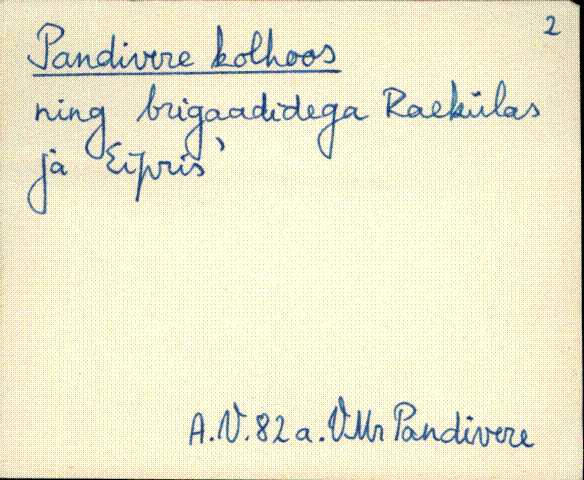 2
Pandivere kolhoos
ning brigaadidega Raekülas
ja Eipris'
A.V. 82 a. VMr Pandivere